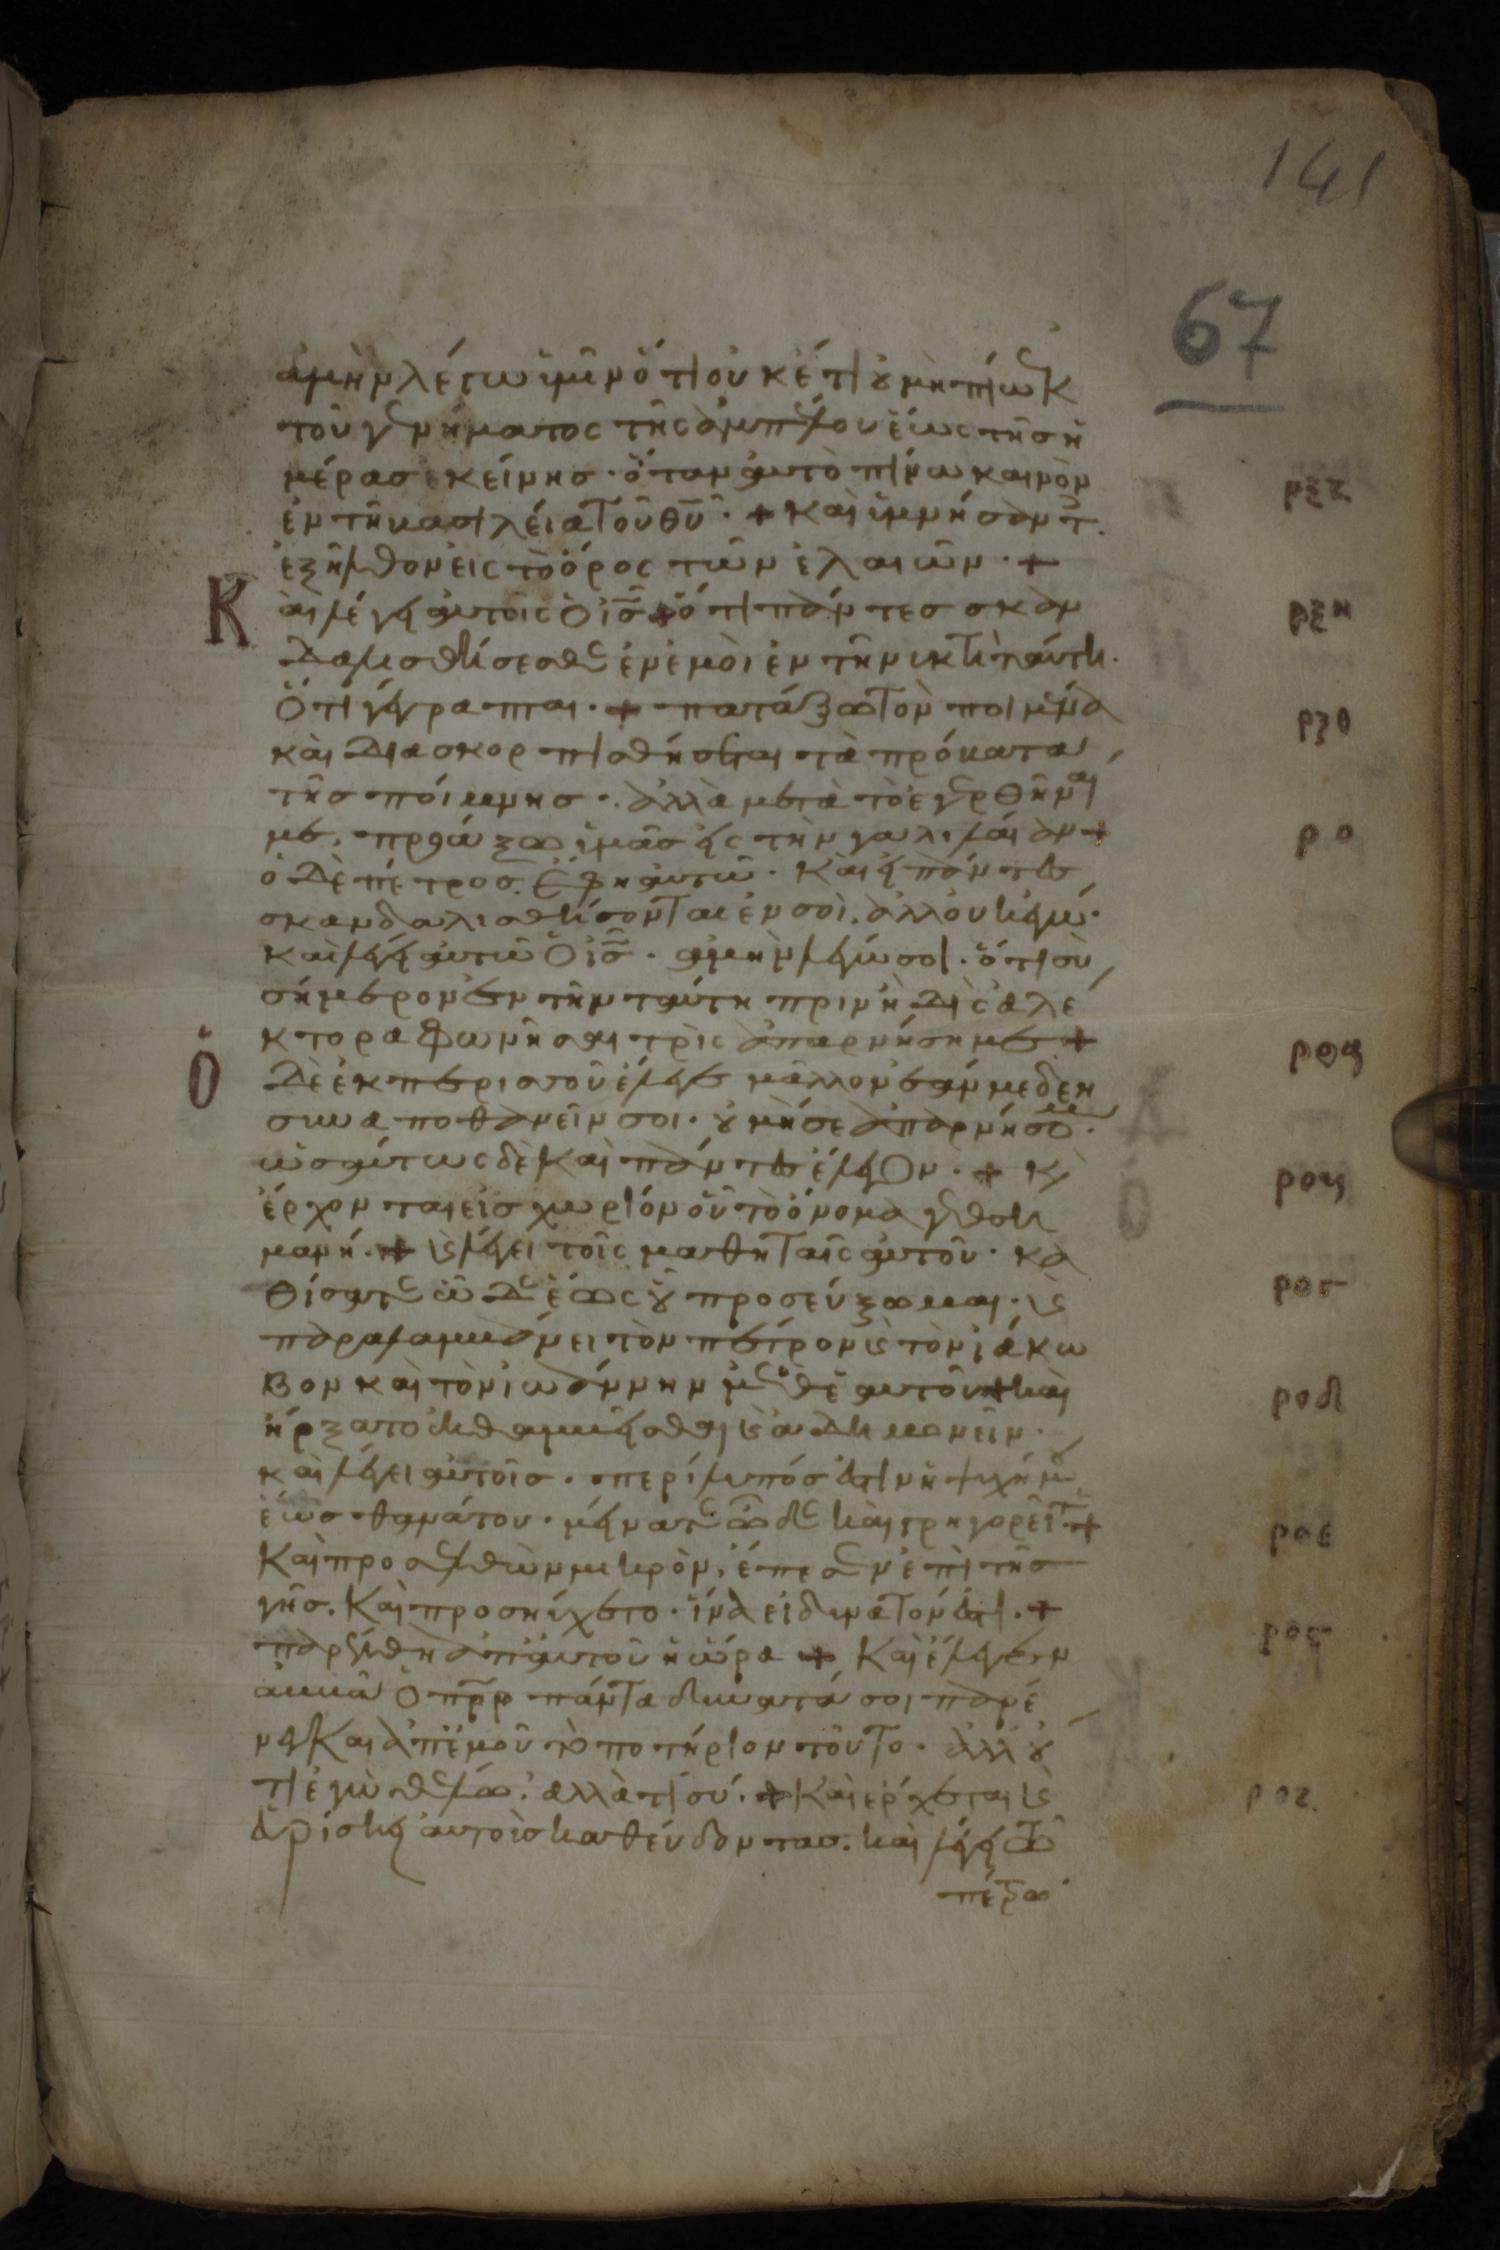 141
67
ἀμὴν λέγω ὑμῖν ὅτι οὐκέτι οὐ μὴ πίω ἐκ
τοῦ γεννήματος τῆς ἀμπέλου ἕως τῆς ἡ
μέρας ἐκείνης · ὅταν αὐτὸ πίνω καινὸν
ἐν τῇ βασιλεία τοῦ θυ · + καὶ ὑμνήσαντ
ρξζ
ἐξῆλθον εἰς τὸ ὄρος τῶν ἐλαιῶν · +
Καὶ λέγει αὐτοῖς ὁ ις + ὅτι πάντες σκαν
ρξη
δαλισθήσεσθε ἐν ἐμοὶ ἐν τῇ νυκτὶ ταύτη ·
ὅτι γέγραπται · + πατάξω τὸν ποιμένα
ρξθ
καὶ διασκορπισθήσεται τὰ πρόβατα
τῆς ποίμνης · ἀλλὰ μετὰ τὸ ἐγερθῆναι
με · προάξω ὑμᾶς εἰς τὴν γαλιλαίαν +
ρο
ὁ δὲ πέτρος ἔφη αὐτῶ · καὶ εἰ πάντες
σκανδαλισθήσονται ἐν σοὶ · ἀλλ οὐκ ἐγώ ·
καὶ λέγει αὐτῶ ὁ ις · ἀμὴν λέγω σοι · ὅτι σὺ
σήμερον ἐν τῇ νυκτὶ ταύτη πρινὴ δὶς ἀλέ
κτορα φωνῆσαι τρὶς ἀπαρνήση με +
ροα
Ὁ δὲ ἐκ περισσοῦ ἔλεγε μᾶλλον ἐάν με δέη
συναποθανεῖν σοι · οὐ μή σε ἀπαρνήσομαι ·
ὡσαύτως δὲ καὶ πάντες ἔλεγον · + κ
ροβ
ἔρχονται εἰς χωρίον οὗ τὸ ὄνομα γεθση
μανή · + κ λέγει τοῖς μαθηταῖς αὐτοῦ · κα
ρογ
θίσατε ὧδε ἕως οὗ προσεύξωμαι · κ
παραλαμβάνει τὸν πέτρον κ τὸν ἰάκω
βον καὶ τὸν ἰωάννην μεθ ἑαυτοῦ + καὶ
ροδ
ἤρξατο ἐκθαμβεῖσθαι κ ἀδημονεῖν ·
καὶ λέγει αὐτοῖς · περίλυπός ἐστιν ἡ ψυχή μου
ἕως θανάτου · μείνατε ὧδε καὶ γρηγορεῖτε +
ροε
Καὶ προσελθὼν μικρὸν · ἔπεσεν ἐπὶ τῆς
γῆς · καὶ προσηύχετο · ἵνα εἰ δυνατόν ἐστι · +
παρέλθη ἀπ αὐτοῦ ἡ ὥρα + Καὶ ἔλεγεν
ρος
ἀββᾶ ὁ πηρ πάντα δυνατά σοι παρέ
νεγκαι ἀπ ἐμοῦ τὸ ποτήριον τοῦτο · ἀλλ οὐ
τι ἐγὼ θέλω · ἀλλὰ τι σύ · + Καὶ ἔρχεται κ
ροζ
εὑρίσκει αὐτοὺς καθεύδοντας · καὶ λέγει τῶ
πέτρω